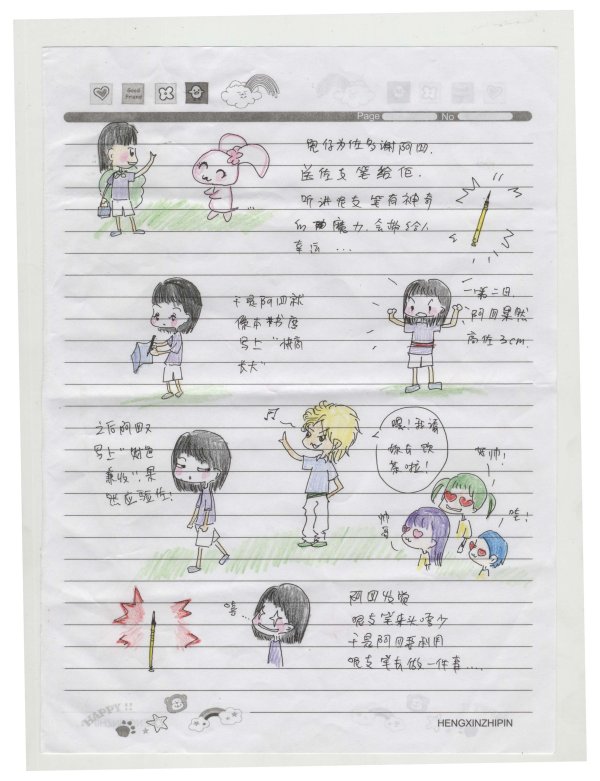 Good
Friend
Page
No
兔仔为佐多谢阿四.
送佐支笔给佢.
听讲呢支笔有神奇
的魔力,会带给人
幸运...
于是阿四就
像本书度
写上"快高
长大"
第二日,
阿四果然
高佐3cm.
之后阿四又
写上"财色
兼收",果
然应验佐!
嘿!我请
你去饮
茶啦!
好帅!
哇!
帅哥
嘻...
阿四发觉
呢支笔来头唔少
于是阿四要利用
呢支笔去做一件事....
HAPPY!!
HENGXINZHIPIN